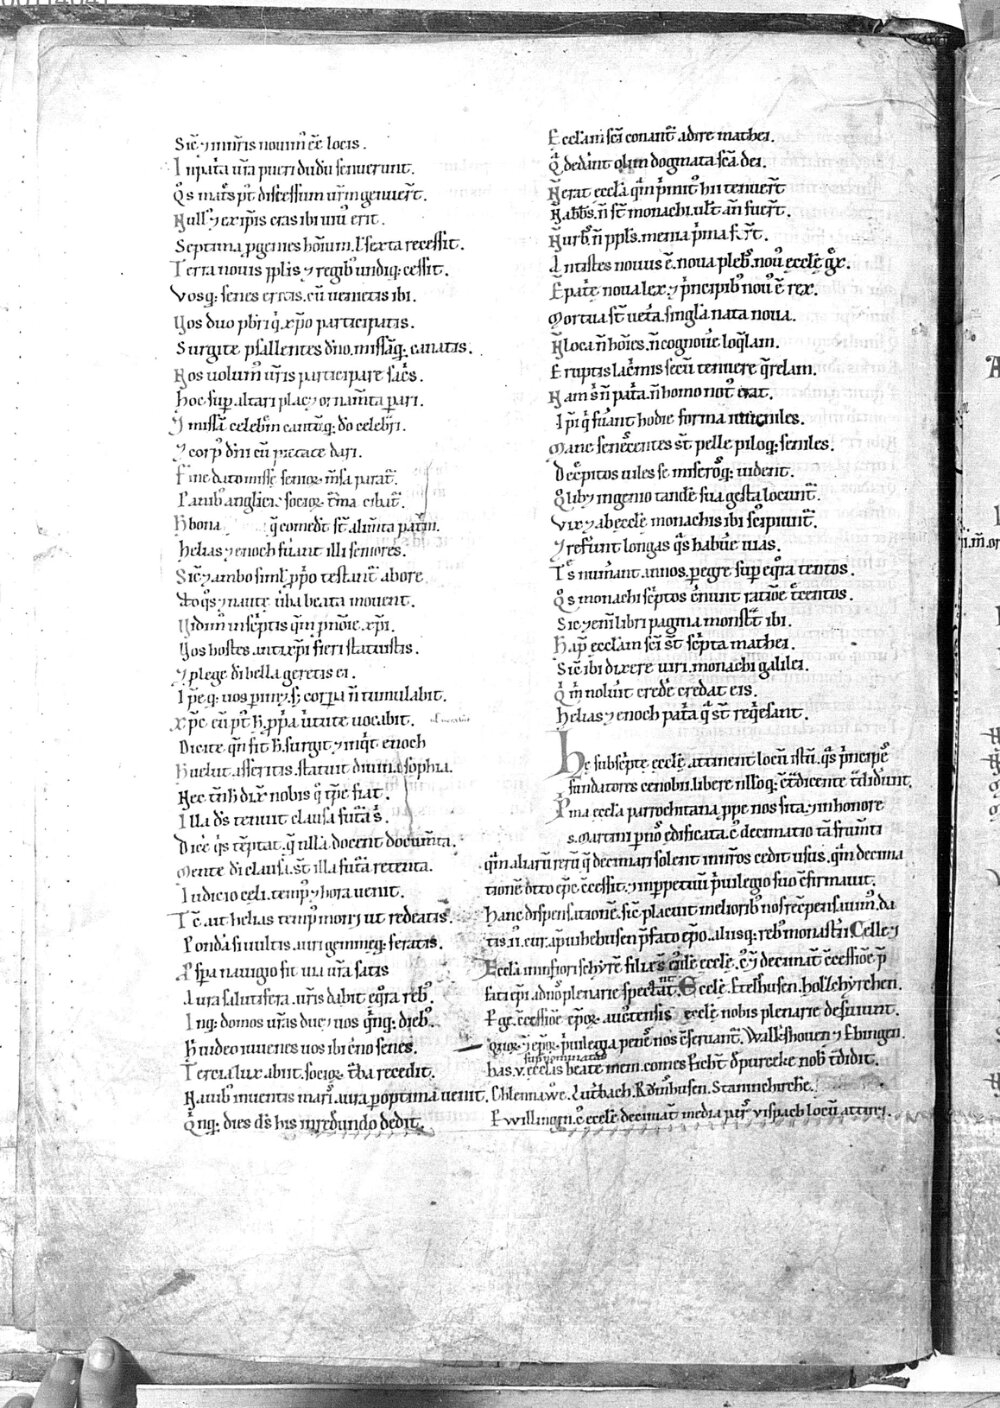 Sic ⁊ in nris nouum e locis.
In patria ura pueri dudu senuerunt.
Qs mats pt discessum urm genuert.
Null ⁊ ex ipsis eras ibi un erit.
Septima pgenies hoium. l sexta recessit.
Terra nouis pplis ⁊ regib undiq; cessit.
Vosq; senes erras. cu uenietis ibi.
Hos duo pbri q xpo participatis.
Surgite psallentes dno. missaq; canatis.
Hos uolum uris participare sacs.
Hoc sup altari place ⁊ ornamta pari.
⁊ corp dni cu pietate dari.
Fine dato misse senior msa parat.
Hbona q comedt st alimta patm.
Helias ⁊ enoch fuant illi seniores.
Sic ⁊ ambo siml ppo testant abore
uba beata mouent.
Uidim in septis qm pnoie xpi.
Vos hostes antixpi fieri statuistis.
⁊ plege di bella geretis ei.
Ipe q; uos pimet. s; corpa n tumulabit.
xpc cu pt h ppa uirtute uocabit.
Dicite qn fit h. surgit ⁊ inqt enoch
H uelut asseritis. statuit diuina sophia.
Hec tm h dix nobis q qe fiat.
Illa ds tenuit clausa futa s.
Dice qs teptat. q nulla docent documta.
Mente di clausa. st illa futa retenta.
Iudicio celi. temp ⁊ hora uenit.
Tc ait helias temp mox ut redeatis.
Ponda si uultis. auri gemmeq; feratis.
Aspa nauigio sit uia ura satis
Aura salutifera uris dabit eqra reb.
Inq; domos uras duce uos qnq; dieb.
H uideo iuuenes uos ibi eno senes.
Tercia lux abiit. socior tba recedit.
Nauib inuentis mari. aura poptima uenit.
Qnq; dies ds his in redundo dedit.
Ecclam sci conant adire mathei.
Q dedant olim dogmata sca dei.
N erat eccla qm pmit hii tenuert
Nabbs. n st monachi. ult an fuert.
N urb. n ppls. menia pma f rt.
Antistes nouus e. noua plebs. nou eccle gx.
E pate noua lex ⁊ pncipib nou e rex.
Mortua st ueta. singla nata noua.
N loca n hoies. n cognoue loqlam.
Eruptis lacmis secu tenuere qrelam.
Nam s n pata. n homo not erat.
Ipi q fuant hodie forma iuueniles.
Mane senescentes st pelle piloq; seniles.
Decpitos uiles se miseroq; uiderit.
Qlib; ingenio tande sua gesta locunt.
Vix ⁊ ab eccle monachis ibi scipiunt.
⁊ refunt longas qs habue uias.
Ts numant annos. pegre sup eqra tentos.
Qs monachi scptos enunt ratioe tcentos.
Sic ⁊ eni libri pagina monstt ibi.
Hap ecclam sci st scpta mathei.
Sic ibi dixere uiri. monachi galilei.
Q m nolunt crede credat eis.
Helias ⁊ enoch pata q st reqesant.
He subscpte eccle. attinent locu istu. qs pncipes
fundatores cenobii. libere illoq; ctdicente tdidunt.
Pma eccla parrochitana. ppe nos sita. ⁊ in honore
s. martini pno edificata. c decimatio ta frumti
qm aliaru reru q decimari solent in nros cedit usus. qm decima
tione dtto epc ccessit. ⁊ in ppetuu puilegio suo cfirmauit.
Hanc dispensatione. sic placuit melioribs nos recpensauim. da
tis. ii. cur. apiuihehusen pfato epo. aliisq; reb monastii Celle ⁊
Eccla in unfiorischyre filiars eiusde eccle. c ⁊ decimat ccessioe p
fati epi. adno plenarie spectat. Eccle. Etelhusen. holzchyrchen.
Ege. ccessioe epor. auctensis eccle nobis plenarie desuiunt.
qnor ⁊ epor. puilegia pene nos cseruant. Walkshouen ⁊ Ebingen.
sup nominatas
has. v. ecclas beate mem. comes Ecbt dpurecke nob tdidit.
Chlennawe. Lutbach. Rombusen. Stamnchirche.
Ewillingin. c eccle decimat media par uispach locu attinj.